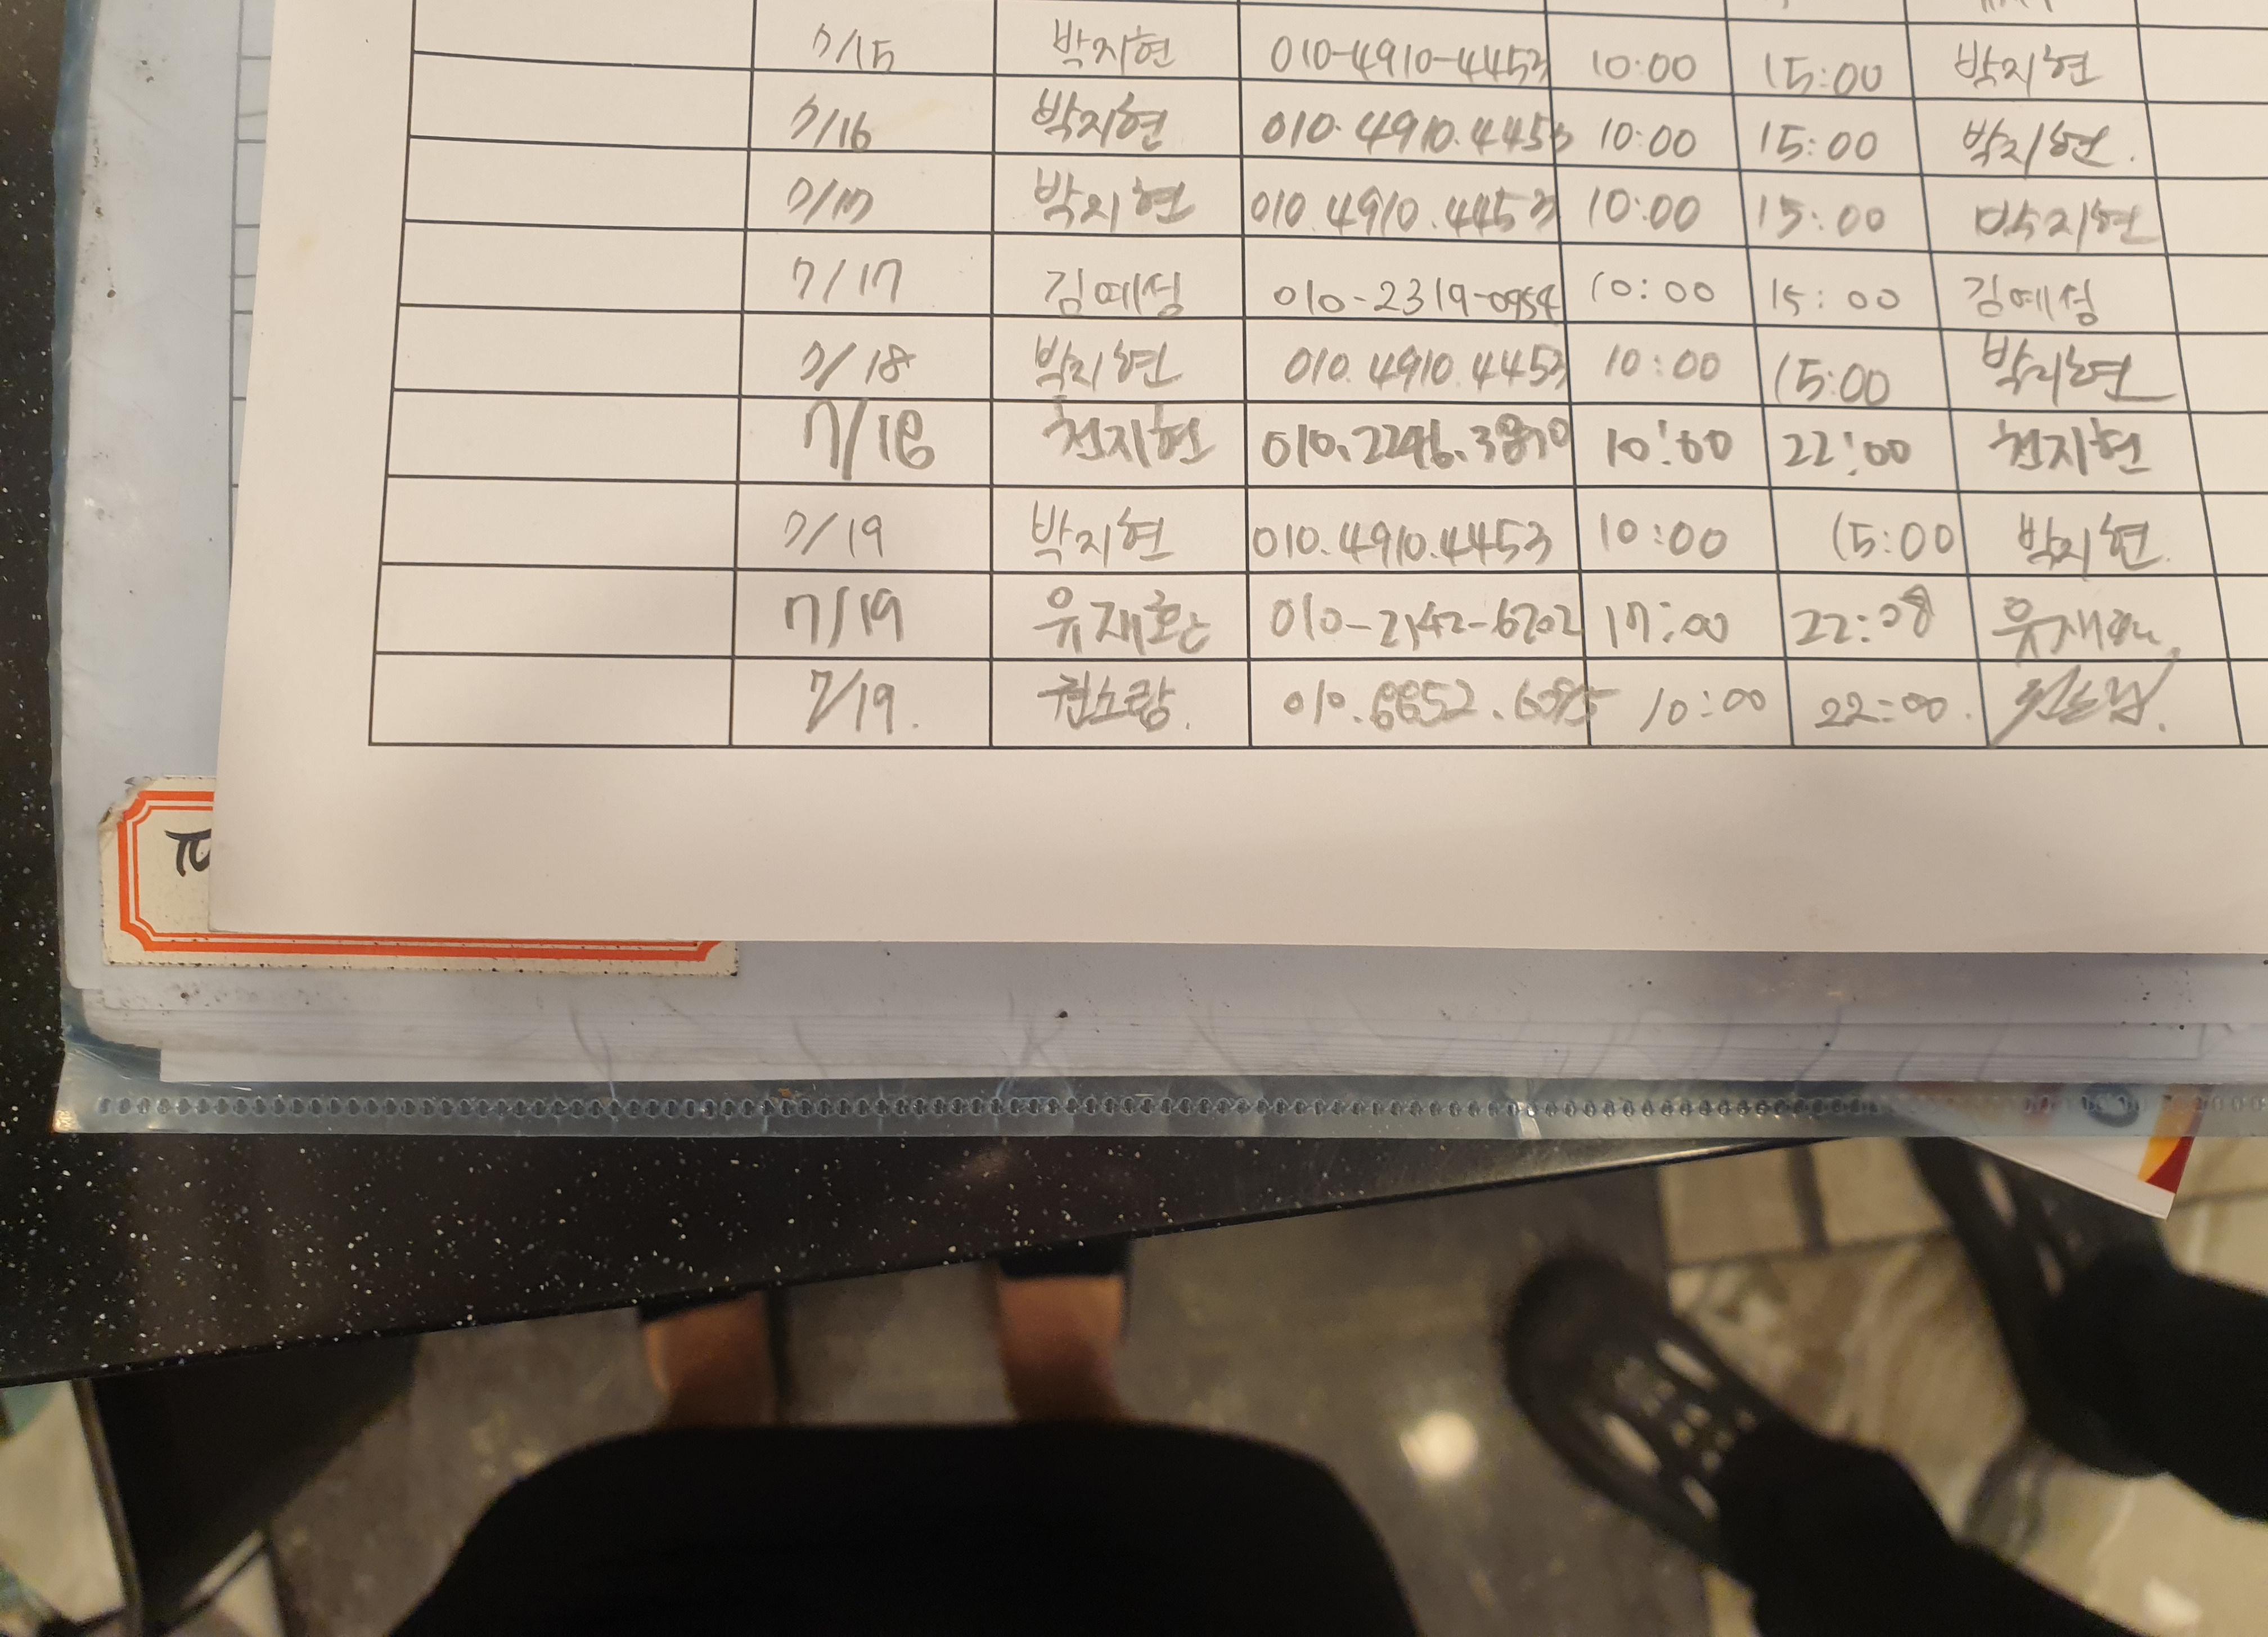 7/15 박지현 010-4910-4453 10:00 15:00 박지현
7/16 박지현 010.4910.4453 10:00 15:00 박지현.
7/17 박지현 010.4910.4453 10:00 15:00 박지현
7/17 김예성 010-2319-0954 10:00 15:00 김예성
7/18 박지현 010.4910.4453 10:00 15:00 박지현
7/18 천지현 10:00 22:00 천지현
7/19 박지현 010.4910.4453 10:00 15:00 박지현.
7/19 유재환 010-2142-6202 17:00 유재환
7/19. 권소랑. 10:00 22:00.